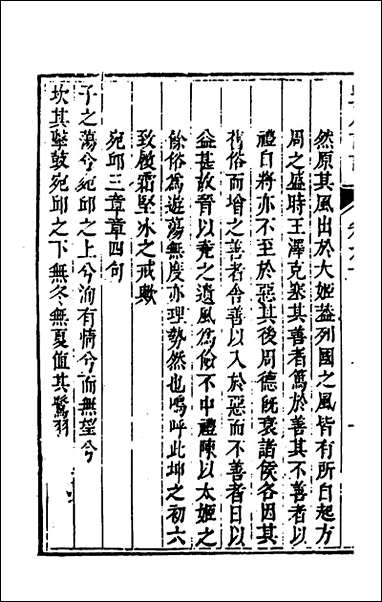 然原其風出於大姬葢列國之風皆有所自起方
周之盛時王澤克塞其善者篤於善其不善者以
禮自將亦不至於惡其後周德既衰諸侯各因其
舊俗而增之善者舍善以入於惡而不善者日以
益甚故晉以堯之遺風爲儉不中禮陳以太姬之
餘俗爲遊蕩無度亦理勢然也嗚呼此坤之初六
致履霜堅冰之戒歟
宛邱三章章四句
子之蕩兮宛邱之上兮洵有情兮而無望兮
坎其擊鼓宛邱之下無冬無夏值其鷺羽